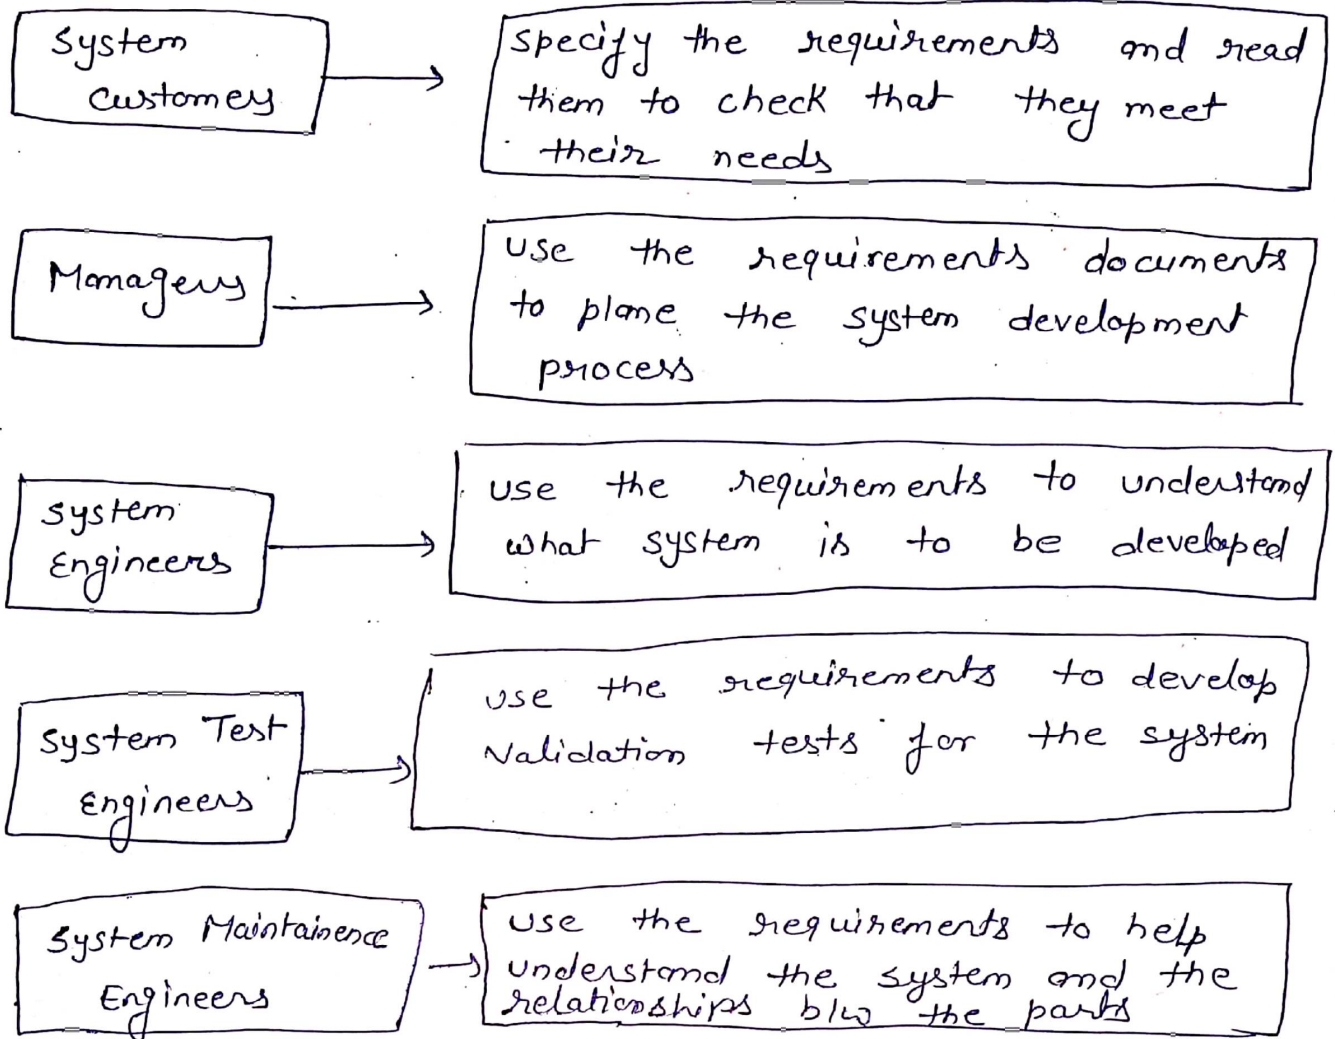 System
Customers
specify the requirements and read
them to check that they meet
their needs
Managers
use the requirements documents
to plane the system development
process
System
Engineers
use the requirements to understand
what system is to be developed
System Test
Engineers
use the requirements to develop
Validation tests for the system
System Maintainence
Engineers
use the requirements to help
understand the system and the
relationships b/w the parts